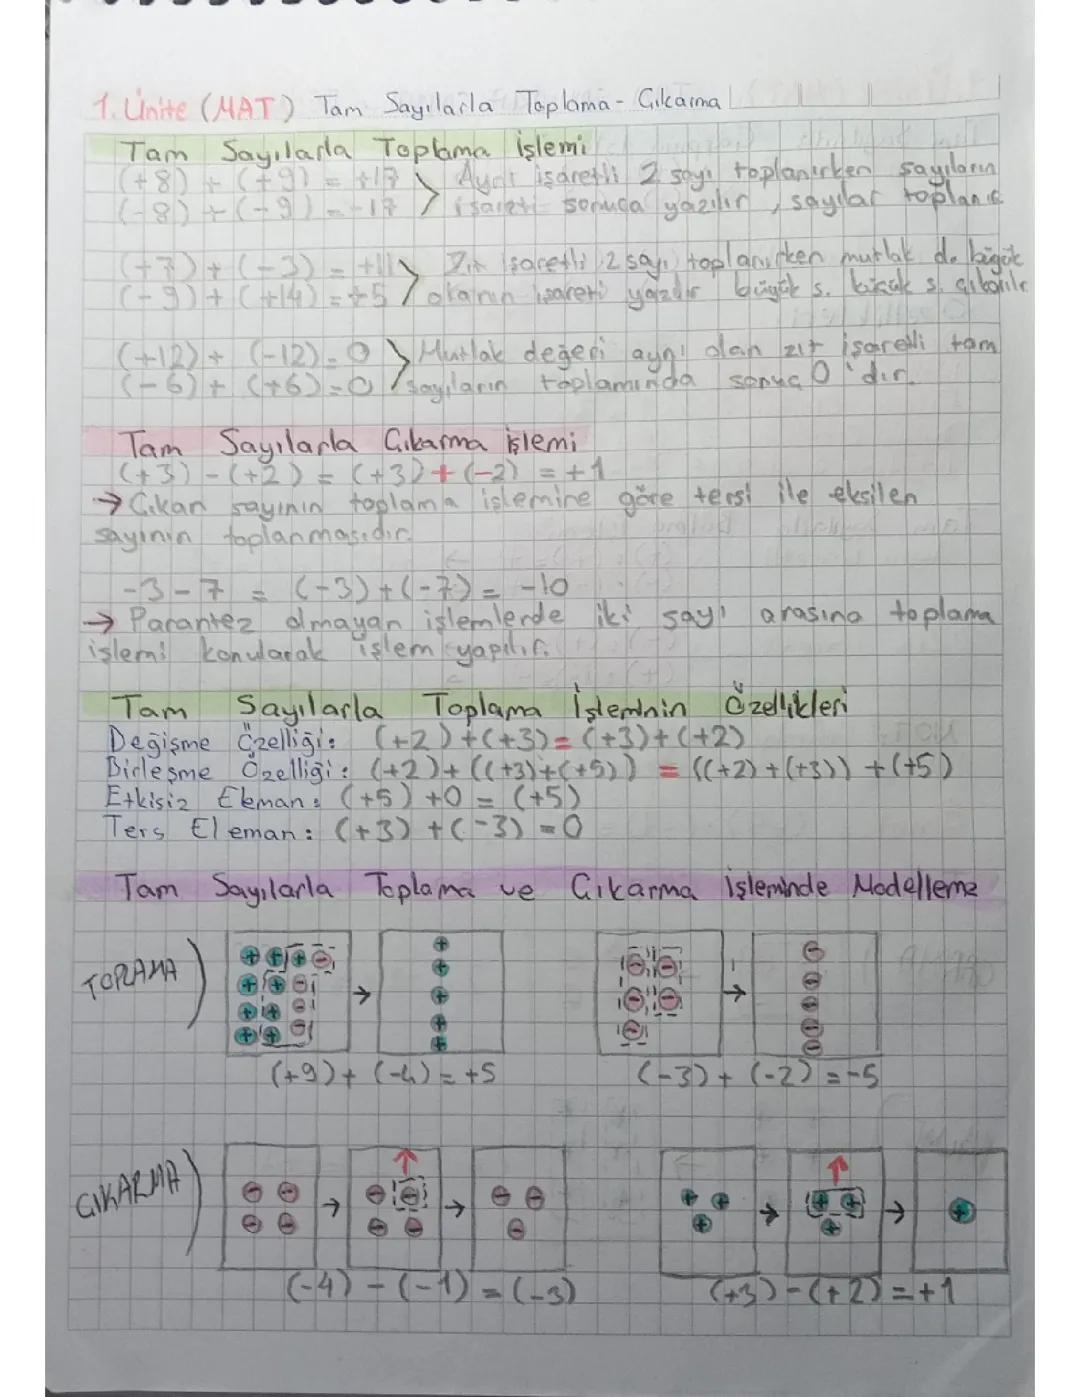 1. Ünite (MAT) Tam Sayılarla Toplama - Çıkarma
Tam Sayılarla Toplama İşlemi
(+8) + (+9) = +17 > Aynı işaretli 2 sayı toplanırken sayıların
(-8) + (-9) = -17 işareti sonuca yazılır, sayılar toplanır.
(+7) + (-3) = > Zıt işaretli 2 sayı toplanırken mutlak d. büyük
(-9) + (+14) = +5 olanın işareti yazılır büyük s. küçük s. çıkarılır
(+12) + (-12) = 0 > Mutlak değeri aynı olan zıt işaretli tam
(-6) + (+6) = 0 sayıların toplamında sonuç 0'dır.
Tam Sayılarla Çıkarma işlemi
(+3) - (+2) = (+3) + (-2) = +1
→ Çıkan sayının toplama işlemine göre tersi ile eksilen
sayının toplanmasıdır.
-3 - 7 = (-3) + (-7) = -10
→ Parantez olmayan işlemlerde iki sayı arasına toplama
işlemi konularak işlem yapılır.
Tam Sayılarla Toplama İşleminin Özellikleri
Değişme Özelliği: (+2) + (+3) = (+3) + (+2)
Birleşme Özelliği: (+2) + ((+3) + (+5)) = ((+2) + (+3)) + (+5)
Etkisiz Eleman: (+5) + 0 = (+5)
Ters Eleman: (+3) + (-3) = 0
Tam Sayılarla Toplama ve Çıkarma İşleminde Modelleme
TOPLAMA)
(+9) + (-4) = +5 (-3) + (-2) = -5
ÇIKARMA)
(-4) - (-1) = (-3) (+3) - (+2) = +1